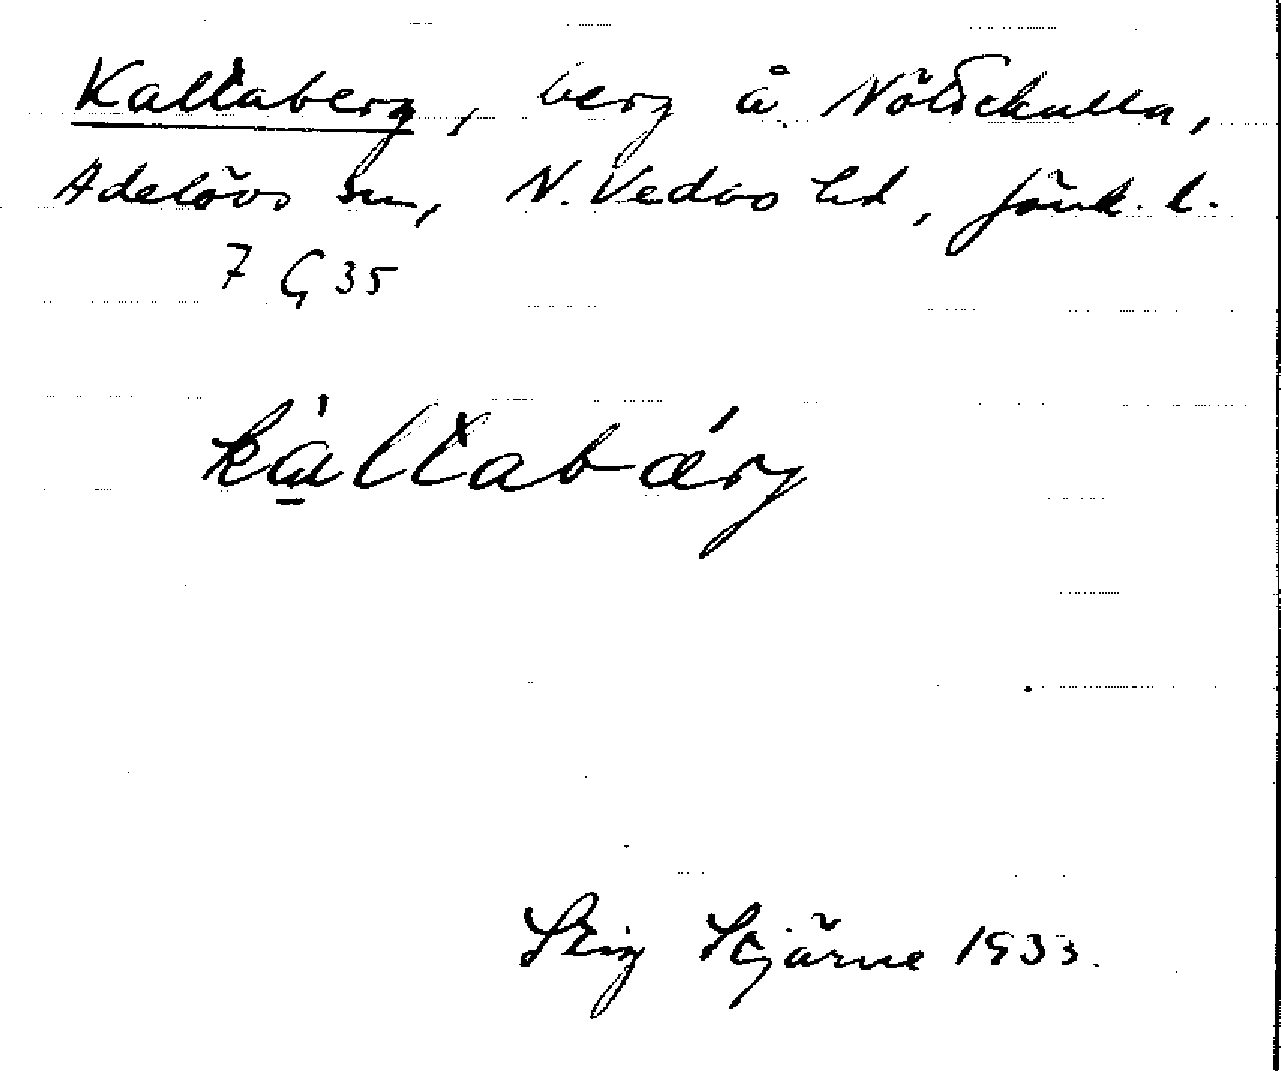 Kaltaberg, berg å Nötsekulla,
Adelövs sn, N. Vedbo hd, Jönk. l.
7 G 35
kàltabárg
Stig Stjärne 1933.